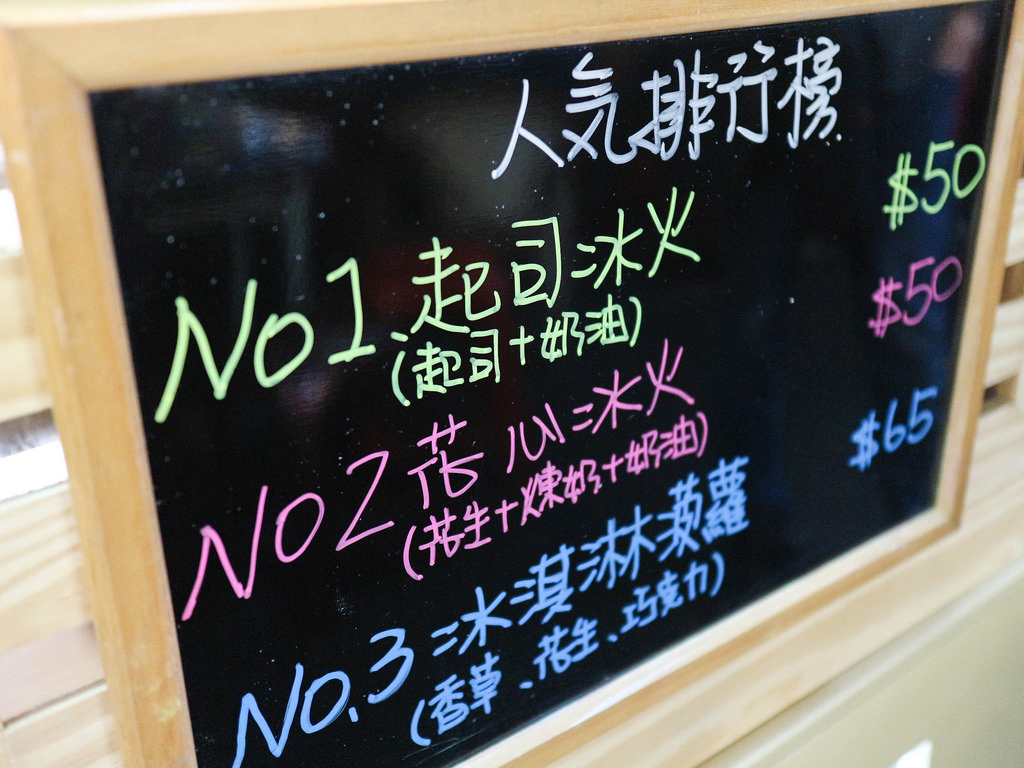 人気排行榜
No1.起司冰火 $50
(起司+奶油)
No2 花心冰火 $50
(花生+煉奶+奶油)
No.3 冰淇淋菠蘿 $65
(香草、花生、巧克力)